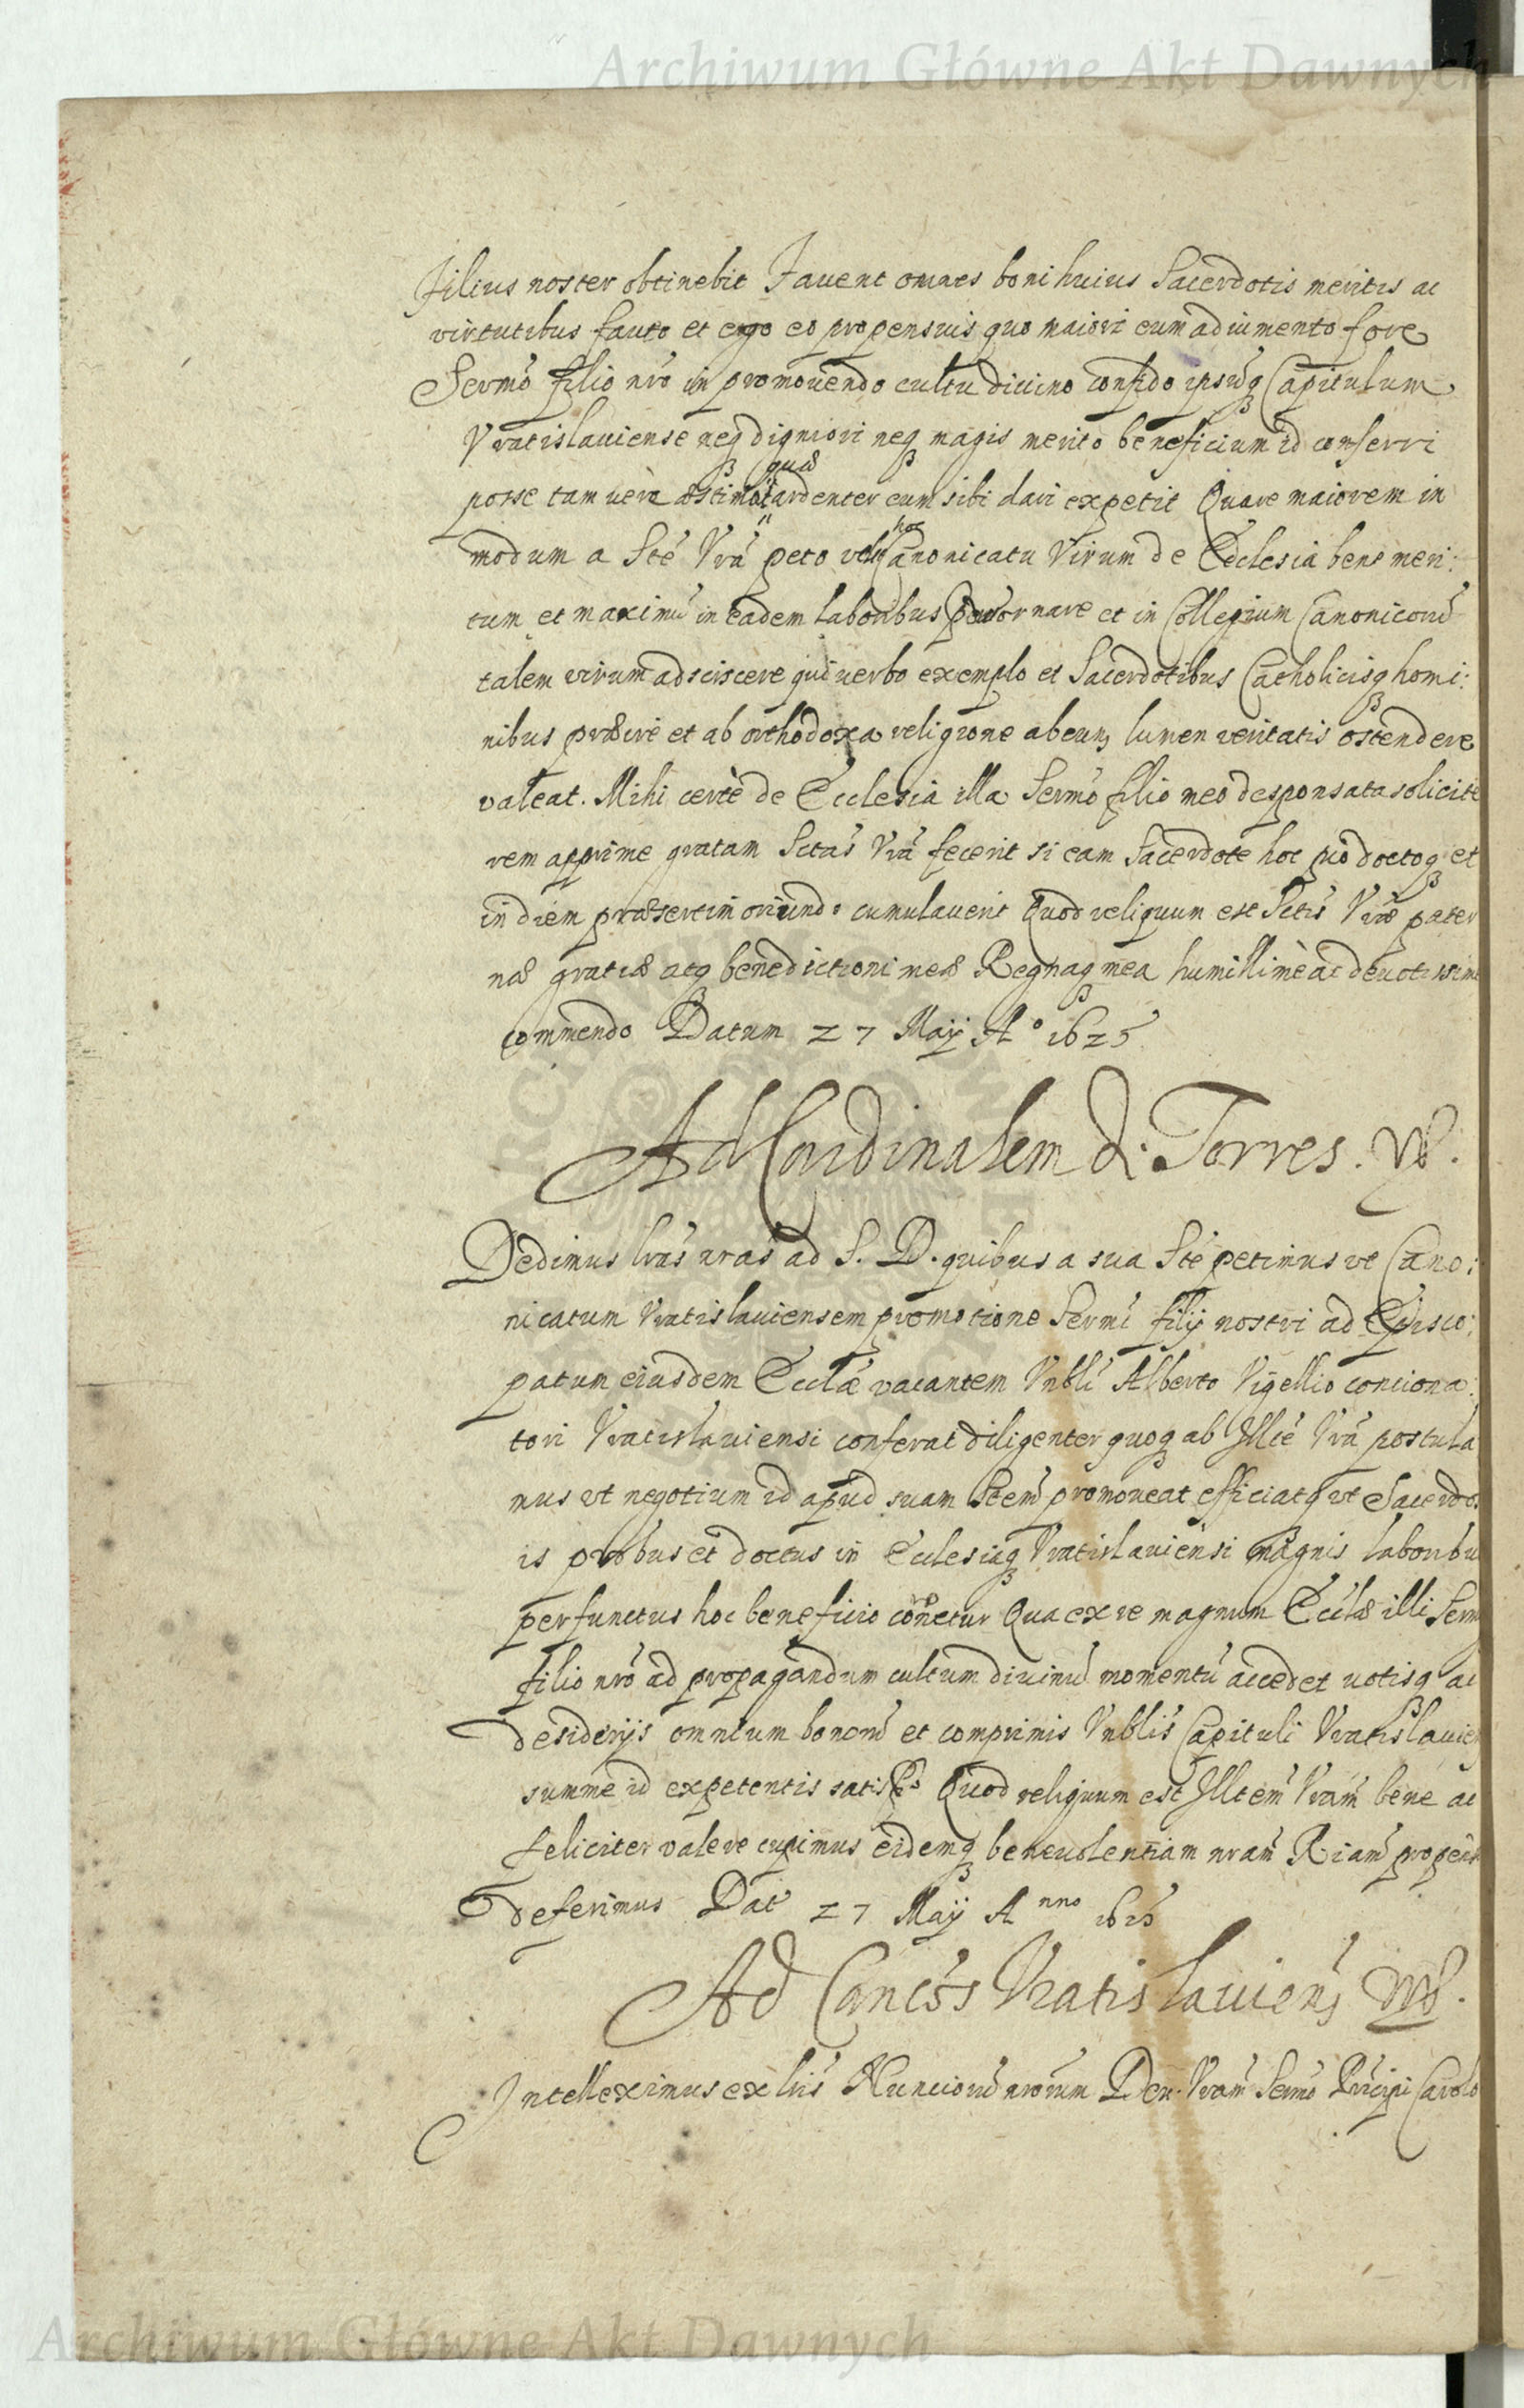 Archiwum Główne Akt Dawnych
filius noster obtinebit Fauent omnes boni huius Sacerdotis meritis ac
virtutibus fauto et ego eo propensius quo maiori eum adiumento fore
Sermo filio nro in promouendo cultu diuino confido ipsumq Capitulum
Vratislauiense neq digniori neq magis merito beneficium id conferri
posse tam uere æstimat quã ardenter eum sibi dari expetit Quare maiorem in
modum a Ste Vra peto velit hoc Canonicatu Virum de Ecclesia bene meri:
tum et maximis in eadem laboribus exornare et in Collegium Canonicorũ
talem virum adsciscere qui uerbo exemplo et Sacerdotibus Catholicisq homi:
nibus præire et ab orthodoxa religione abeuntibus lumen veritatis ostendere
valeat. Mihi certè de Ecclesia illa Sermo filio meo desponsata solicite
rem apprime gratam Sctas Vra fecerit si eam Sacerdote hoc pio doctoq et
indiem præsertim oriundo cumulauerit Quod reliquum est Sctis Vræ pater
næ gratiæ atq benedictioni meæ Regnaq mea humillimè ac deuotissime
commendo Datum 27 Maij Aº 1625
Ad Cardinalem di Torres.
Dedimus lras nras ad S. D. quibus a sua Ste petimus vt Cano:
nicatum Vratislauiensem promotione Sermi filij nostri ad Episco:
patum eiusdem Ecclæ vacantem Vnbli Alberto Vigellio conciona:
tori Vratislauiensi conferat diligenter quoq ab Illte Vra postula
mus vt negotium id apud suam Stem promoueat efficiatq vt Sacerdos
is probus et doctus in Ecclesiaq Vratislauiensi magnis laboribu
perfunctus hoc beneficio ornetur Qua ex re magnum Ecclæ illi Serm
filio nro ad propagandum cultum diuinũ momentũ accedet uotisq ac
desiderijs omnium bonorũ et comprimis Vnblis Capituli Vratislauien
summe id expetentis satisfiet Quod reliquum est Illtem Vram bene ac
feliciter valere cupimus eidemq beneuolentiam nram Riam propense
deferimus Dat 27 Maij Anno 1625
Ad Cancos Vratislauiens
Intelleximus ex lris Nunciorũ nrorum Den. Vram Sermo Principi Carolo
Archiwum Główne Akt Dawnych